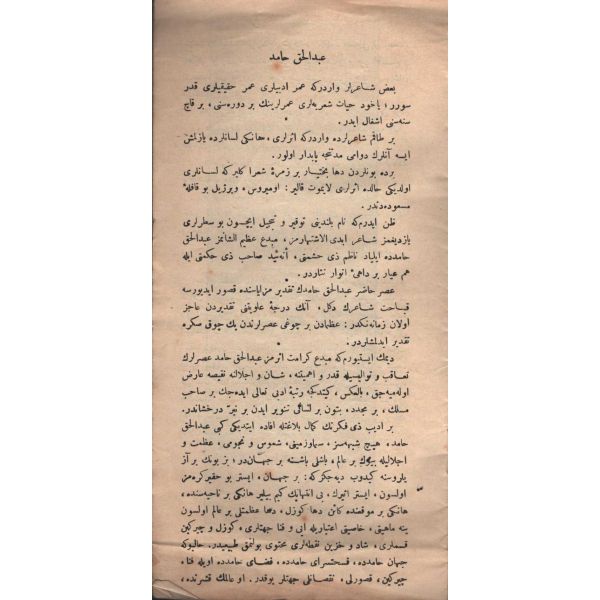 عبدالحق حامد
بعض شاعرلر واردركه عمر ادبيلرى عمر حقيقيلرى قدر
سورر ؛ ياخود حيات شعريه‌لرى عمرلرينك بر دوره‌سنى ، بر قاچ
سنه‌سنى اشغال ايدر .
بر طاقم شاعرلرده واردركه اثرلرى ، هانكى لسانلرده يازلمش
ايسه آنلرك دوامى مدتنجه پايدار اولور .
برده بونلردن دها بختيار بر زمرۀ شعرا كليركه لسانلرى
اولديكى حالده اثرلرى لايموت قالير : اوميروس ، ويرژيل بو قافلۀ
مسعوده‌دندر .
ظن ايدرم‌كه نام بلندينى توقير و تبجيل ايچون بو سطرلرى
يازديغمز شاعر ابدى الاشتهارمز ، مبدع عظيم الشانمز عبدالحق
حامدده ايلياد ناظم ذى حشمتى ، آنه‌ئيد صاحب ذى حكمتى ايله
هم عيار بر داهئ انوار نثاردر .
عصر حاضر عبدالحق حامدك تقدير مزاياسنده قصور ايديورسه
قباحت شاعرك دكل ، آنك درجۀ علويتنى تقديردن عاجز
اولان زمانه‌نكدر : عظمادن بر چوغى عصرلرندن پك چوق سكره
تقدير ايدلمشلردر .
ديمك ايستيورم‌كه مبدع كرامت اثرمز عبدالحق حامد عصرلرك
تعاقب و تواليسيله قدر و اهميتنه ، شان و اجلالنه نقيصه عارض
اوله‌ميه‌جق ، بالعكس ، كيتدكجه رتبۀ ادبى تعالى ايده‌جك بر صاحب
مسلك ، بر مجدد ، بتون بر لسانى تنوير ايدن بر نير درخشاندر .
بر اديب ذى فكرتك كمال بلاغتله افاده ايتديكى كبى عبدالحق
حامد ، هيچ شبهه‌سز ، سما و زمينى ، شموس و نجومى ، عظمت و
اجلاليله بيوك بر عالم ، باشلى باشنه بر جهاندر ؛ بز بونك بر آز
ايلروسنه كيدوب ديه‌جكزكه : بر جهان ، ايستر بو حقير كره‌مز
اولسون ، ايستر اثيرك ، بى انتهانك كيم بيلير هانكى بر ناحيه‌سنده ،
هانكى بر موقعنده كائن دها كوزل ، دها عظمتلى بر عالم اولسون
ينه ماهيتى ، خاصيتى اعتباريله ايى و فنا جهتلرى ، كوزل و چيركين
قسملرى ، شاد و حزين نقطه‌لرى محتوى بولنمق طبيعيدر . حالبوكه
جهان حامدده ، فسحتسراى حامدده ، فضاى حامدده اويله فنا ،
چيركين ، قصورلى ، نقصانلى جهتلر يوقدر . او عالمك قشرنده ،